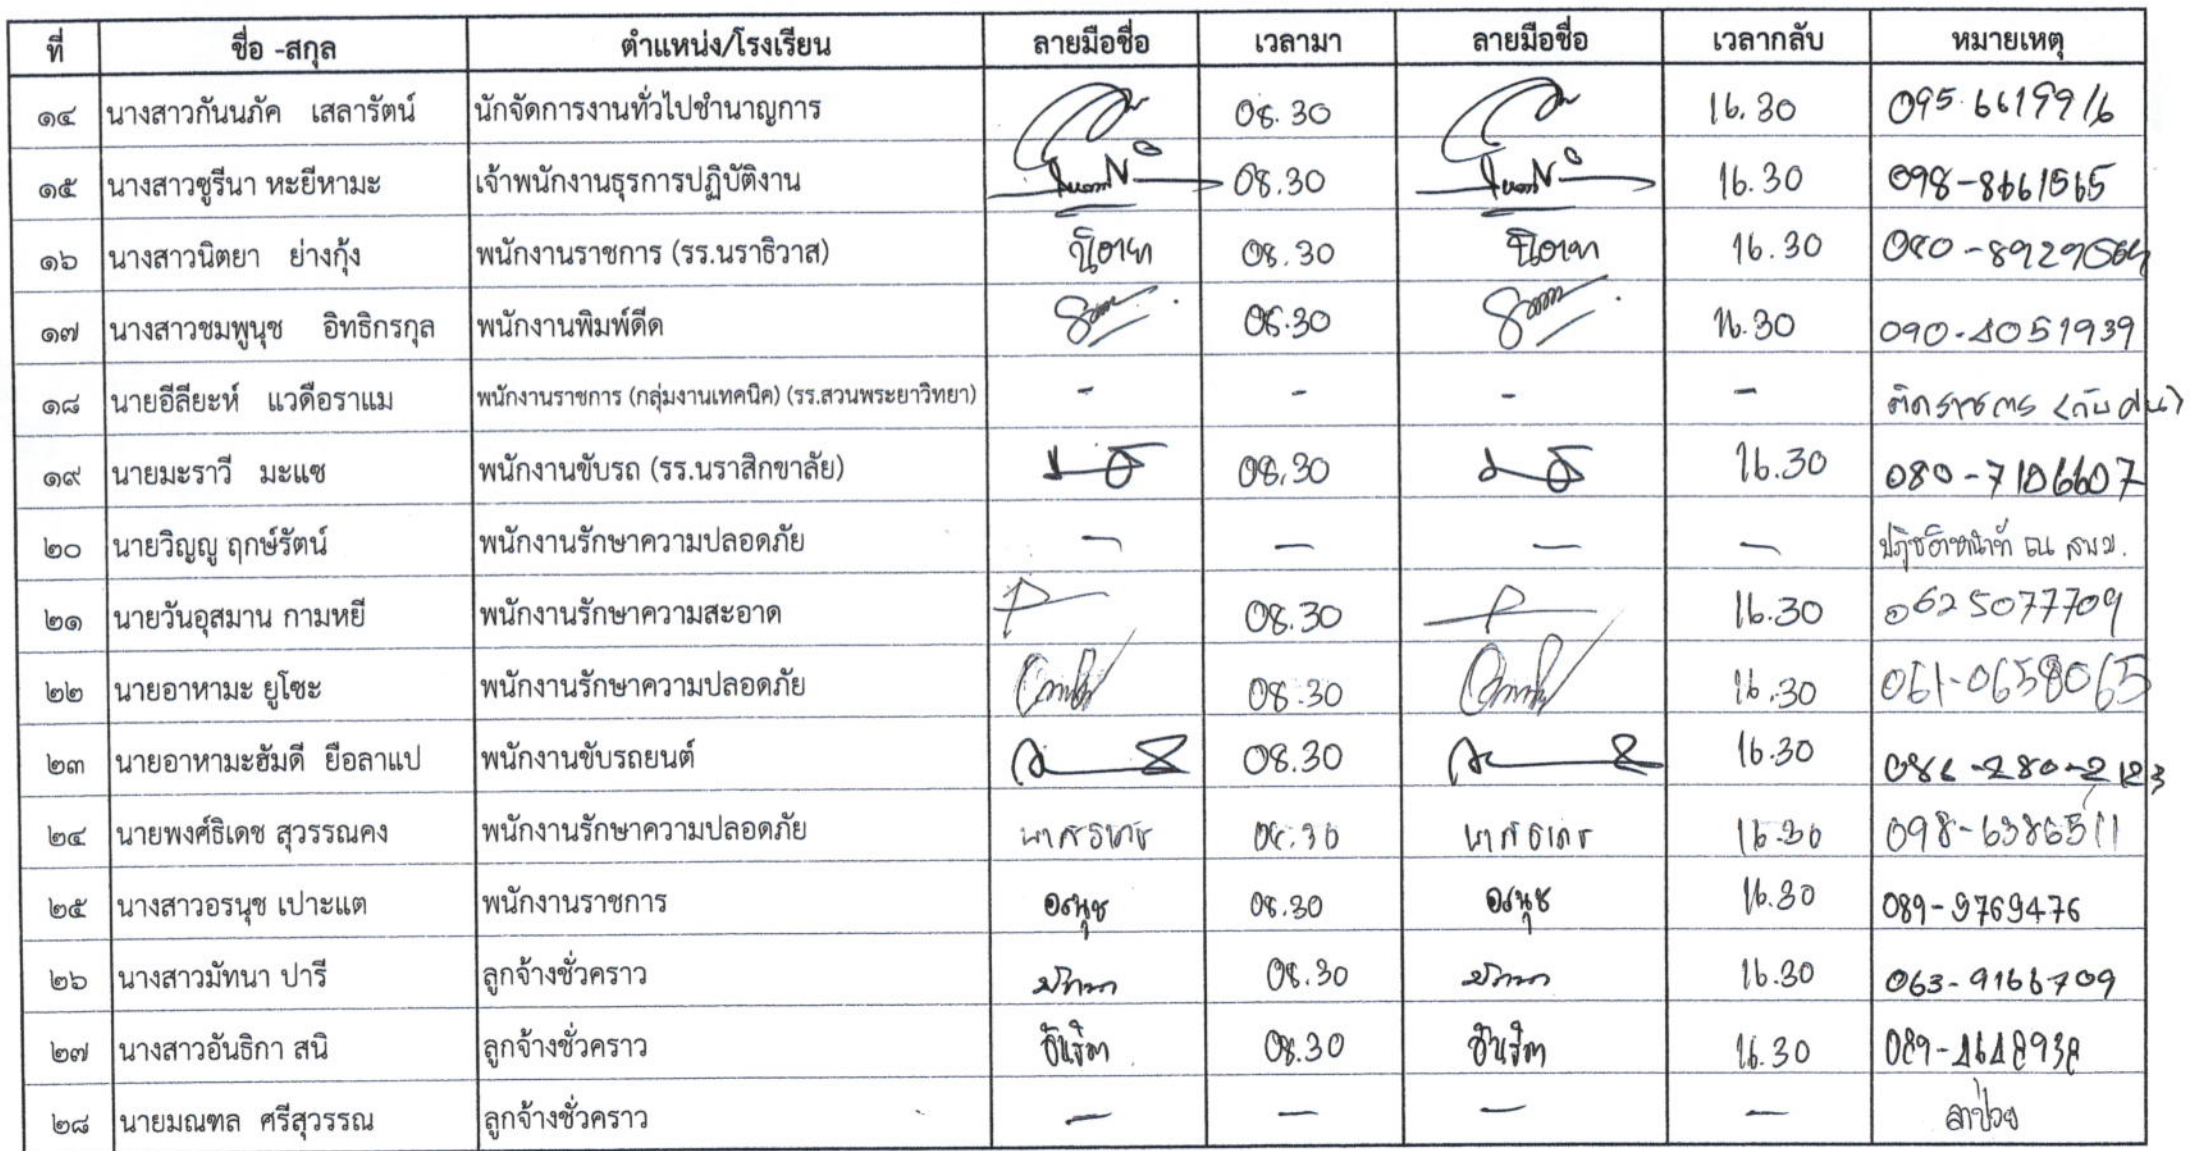 ที่ ชื่อ -สกุล ตำแหน่ง/โรงเรียน ลายมือชื่อ เวลามา ลายมือชื่อ เวลากลับ หมายเหตุ
๑๔ นางสาวกันนภัค เสลารัตน์ นักจัดการงานทั่วไปชำนาญการ 08.30 16.30 095-6619916
๑๕ นางสาวซูรีนา หะยีหามะ เจ้าพนักงานธุรการปฏิบัติงาน 08.30 16.30 098-8661565
๑๖ นางสาวนิตยา ย่างกุ้ง พนักงานราชการ (รร.นราธิวาส) นิตยา 08.30 นิตยา 16.30
๑๗ นางสาวชมพูนุช อิทธิกรกุล พนักงานพิมพ์ดีด 08.30 16.30 090-4051939
๑๘ นายอีลียะห์ แวดือราแม พนักงานราชการ (กลุ่มงานเทคนิค) (รร.สวนพระยาวิทยา) - - - - ติดราชการ
๑๙ นายมะราวี มะแซ พนักงานขับรถ (รร.นราสิกขาลัย) 08.30 16.30 080-7106607
๒๐ นายวิญญู ฤกษ์รัตน์ พนักงานรักษาความปลอดภัย - - - - ปฏิบัติหน้าที่ ณ สพม.
๒๑ นายวันอุสมาน กามหยี พนักงานรักษาความสะอาด 08.30 16.30 0625077709
๒๒ นายอาหามะ ยูโซะ พนักงานรักษาความปลอดภัย 08.30 16.30 061-0658065
๒๓ นายอาหามะฮัมดี ยือลาแป พนักงานขับรถยนต์ 08.30 16.30
๒๔ นายพงศ์ธิเดช สุวรรณคง พนักงานรักษาความปลอดภัย พงศ์ธิเดช 08.30 พงศ์ธิเดช 16.30 098-6386511
๒๕ นางสาวอรนุช เปาะแต พนักงานราชการ อรนุช 08.30 อรนุช 16.30 089-9769476
๒๖ นางสาวมัทนา ปารี ลูกจ้างชั่วคราว มัทนา 08.30 มัทนา 16.30 063-9166709
๒๗ นางสาวอันธิกา สนิ ลูกจ้างชั่วคราว อันธิกา 08.30 อันธิกา 16.30 089-4648938
๒๘ นายมณฑล ศรีสุวรรณ ลูกจ้างชั่วคราว - - - - ลาป่วย